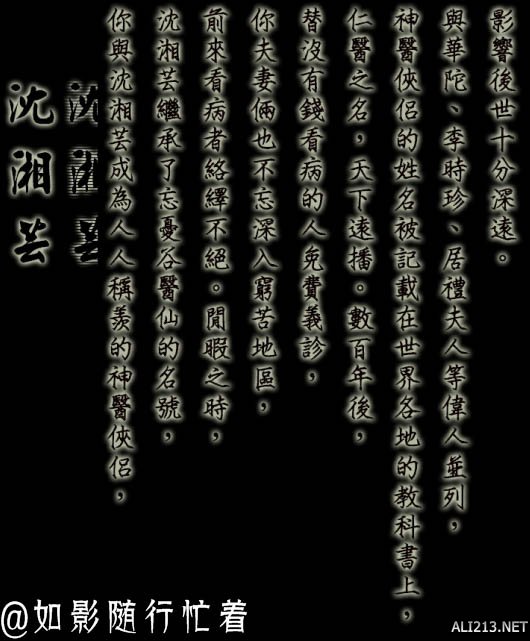 沈湘芸
沈湘芸
你與沈湘芸成為人人稱羨的神醫俠侶，
沈湘芸繼承了忘憂谷醫仙的名號，
前來看病者絡繹不絕。閒暇之時，
你夫妻倆也不忘深入窮苦地區，
替沒有錢看病的人免費義診，
仁醫之名，天下遠播。數百年後，
神醫俠侶的姓名被記載在世界各地的教科書上，
與華陀、李時珍、居禮夫人等偉人並列，
影響後世十分深遠。
@如影随行忙着
ALI213.NET